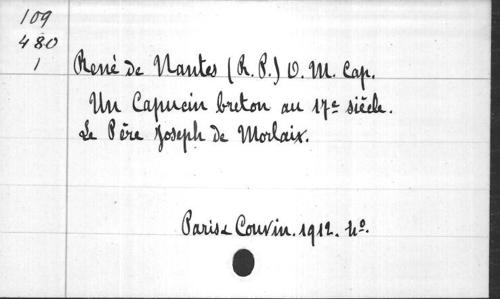 109
480
1
René de Nantes (R. P.) O. M. Cap.
Un Capucin breton au 17e siècle.
Le Père Joseph de Morlaix.
Paris & Couvin. 1912. 4o.